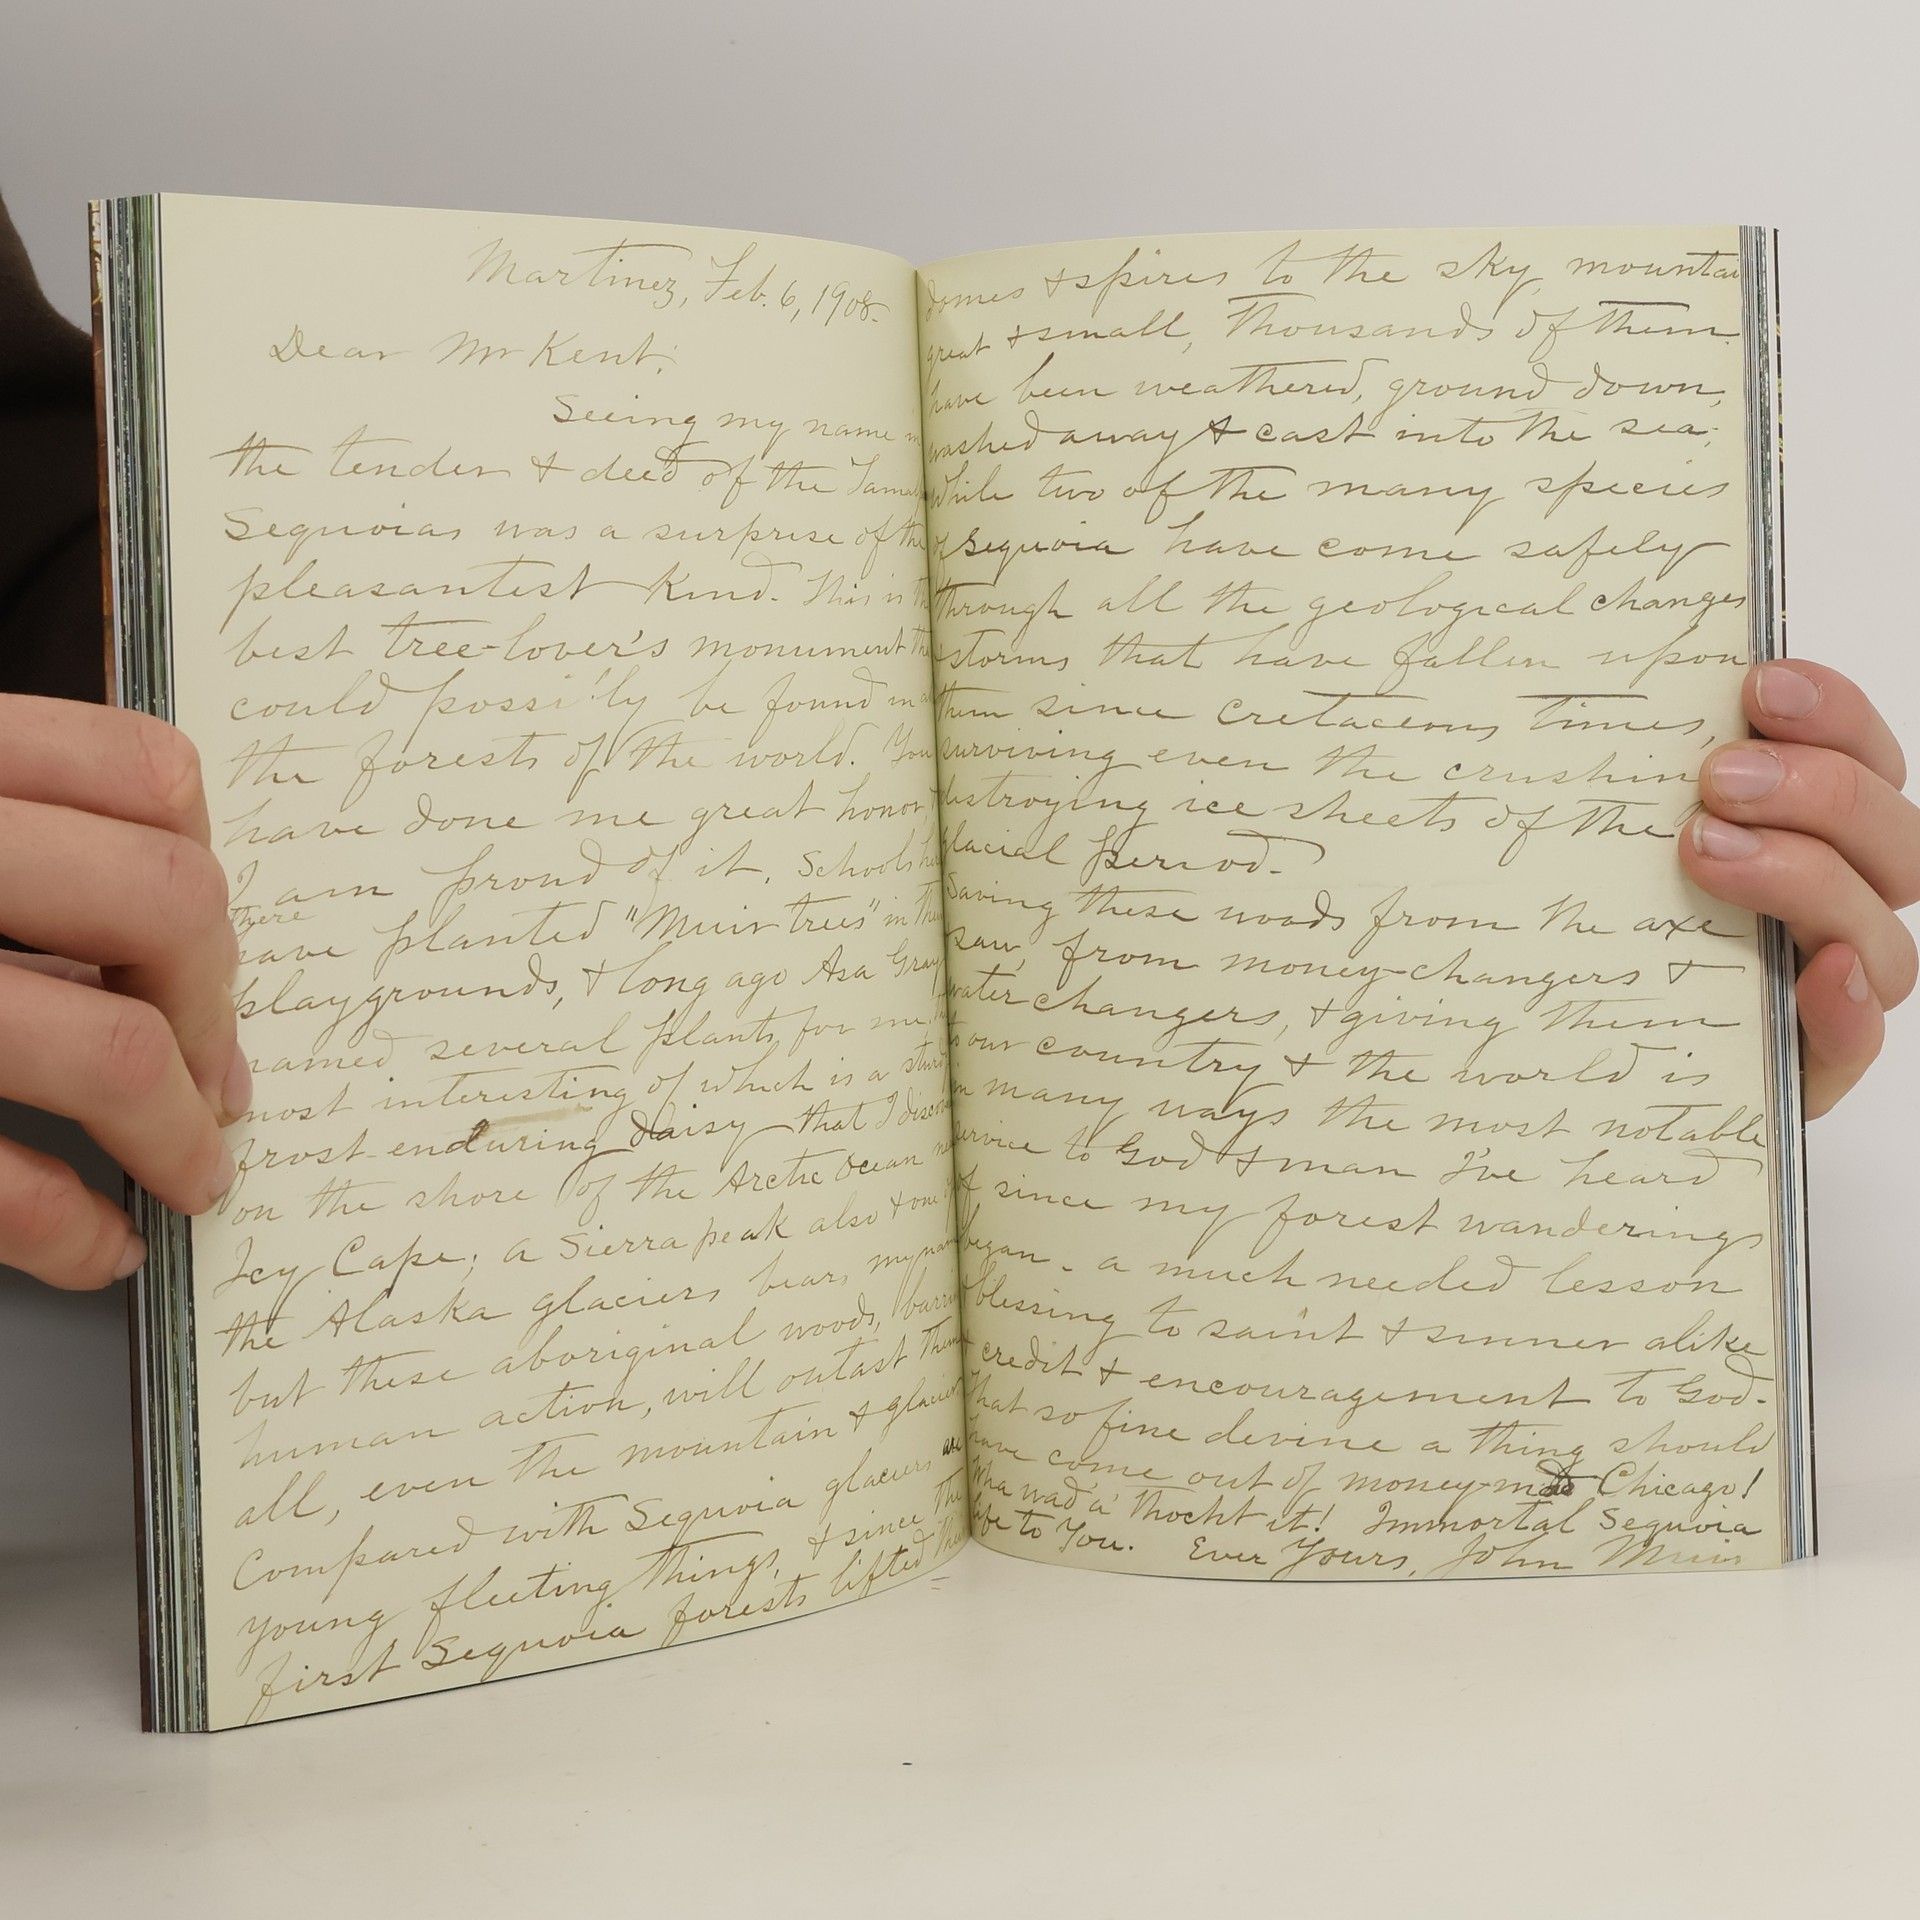 Martinez, Feb. 6, 1908.
Dear Mr Kent:
Seeing my name in
the tender & deed of the Tamal
Sequoias was a surprise of the
pleasantest kind. This is the
best tree-lover's monument tha
could possi'ly be found in a
the forests of the world. You
have done me great honor,
I am proud of it. Schools he
there
have planted "Muir trees" in their
playgrounds, & long ago Asa Gray
named several plants for me, the
most interesting of which is a sturd
frost-enduring daisy that I discov
on the shore of the Arctic Ocean near
Icy Cape; a Sierra peak also & one of
the Alaska glaciers bears my name
but these aboriginal woods, barrin
human action, will outlast them
all, even the mountain & glacier
Compared with Sequoia glaciers are
young fleeting things, & since the
first Sequoia forests lifted their
domes & spires to the sky, mountai
great & small, thousands of them.
have been weathered, ground down,
washed away & cast into the sea;
while two of the many species
of Sequoia have come safely
through all the geological changes
& storms that have fallen upon
them since cretaceous times,
surviving even the crushin
destroying ice sheets of the
glacial period.
Saving these woods from the axe
saw, from money-changers &
water changers, & giving them
to our country & the world is
in many ways the most notable
service to God & man I've heard
of since my forest wanderings
began - a much needed lesson
& blessing to saint & sinner alike
& credit & encouragement to God.
That so fine devine a thing should
have come out of money-mad Chicago!
Wha wad'a' thocht it! Immortal Sequoia
life to You. Ever Yours, John Muir